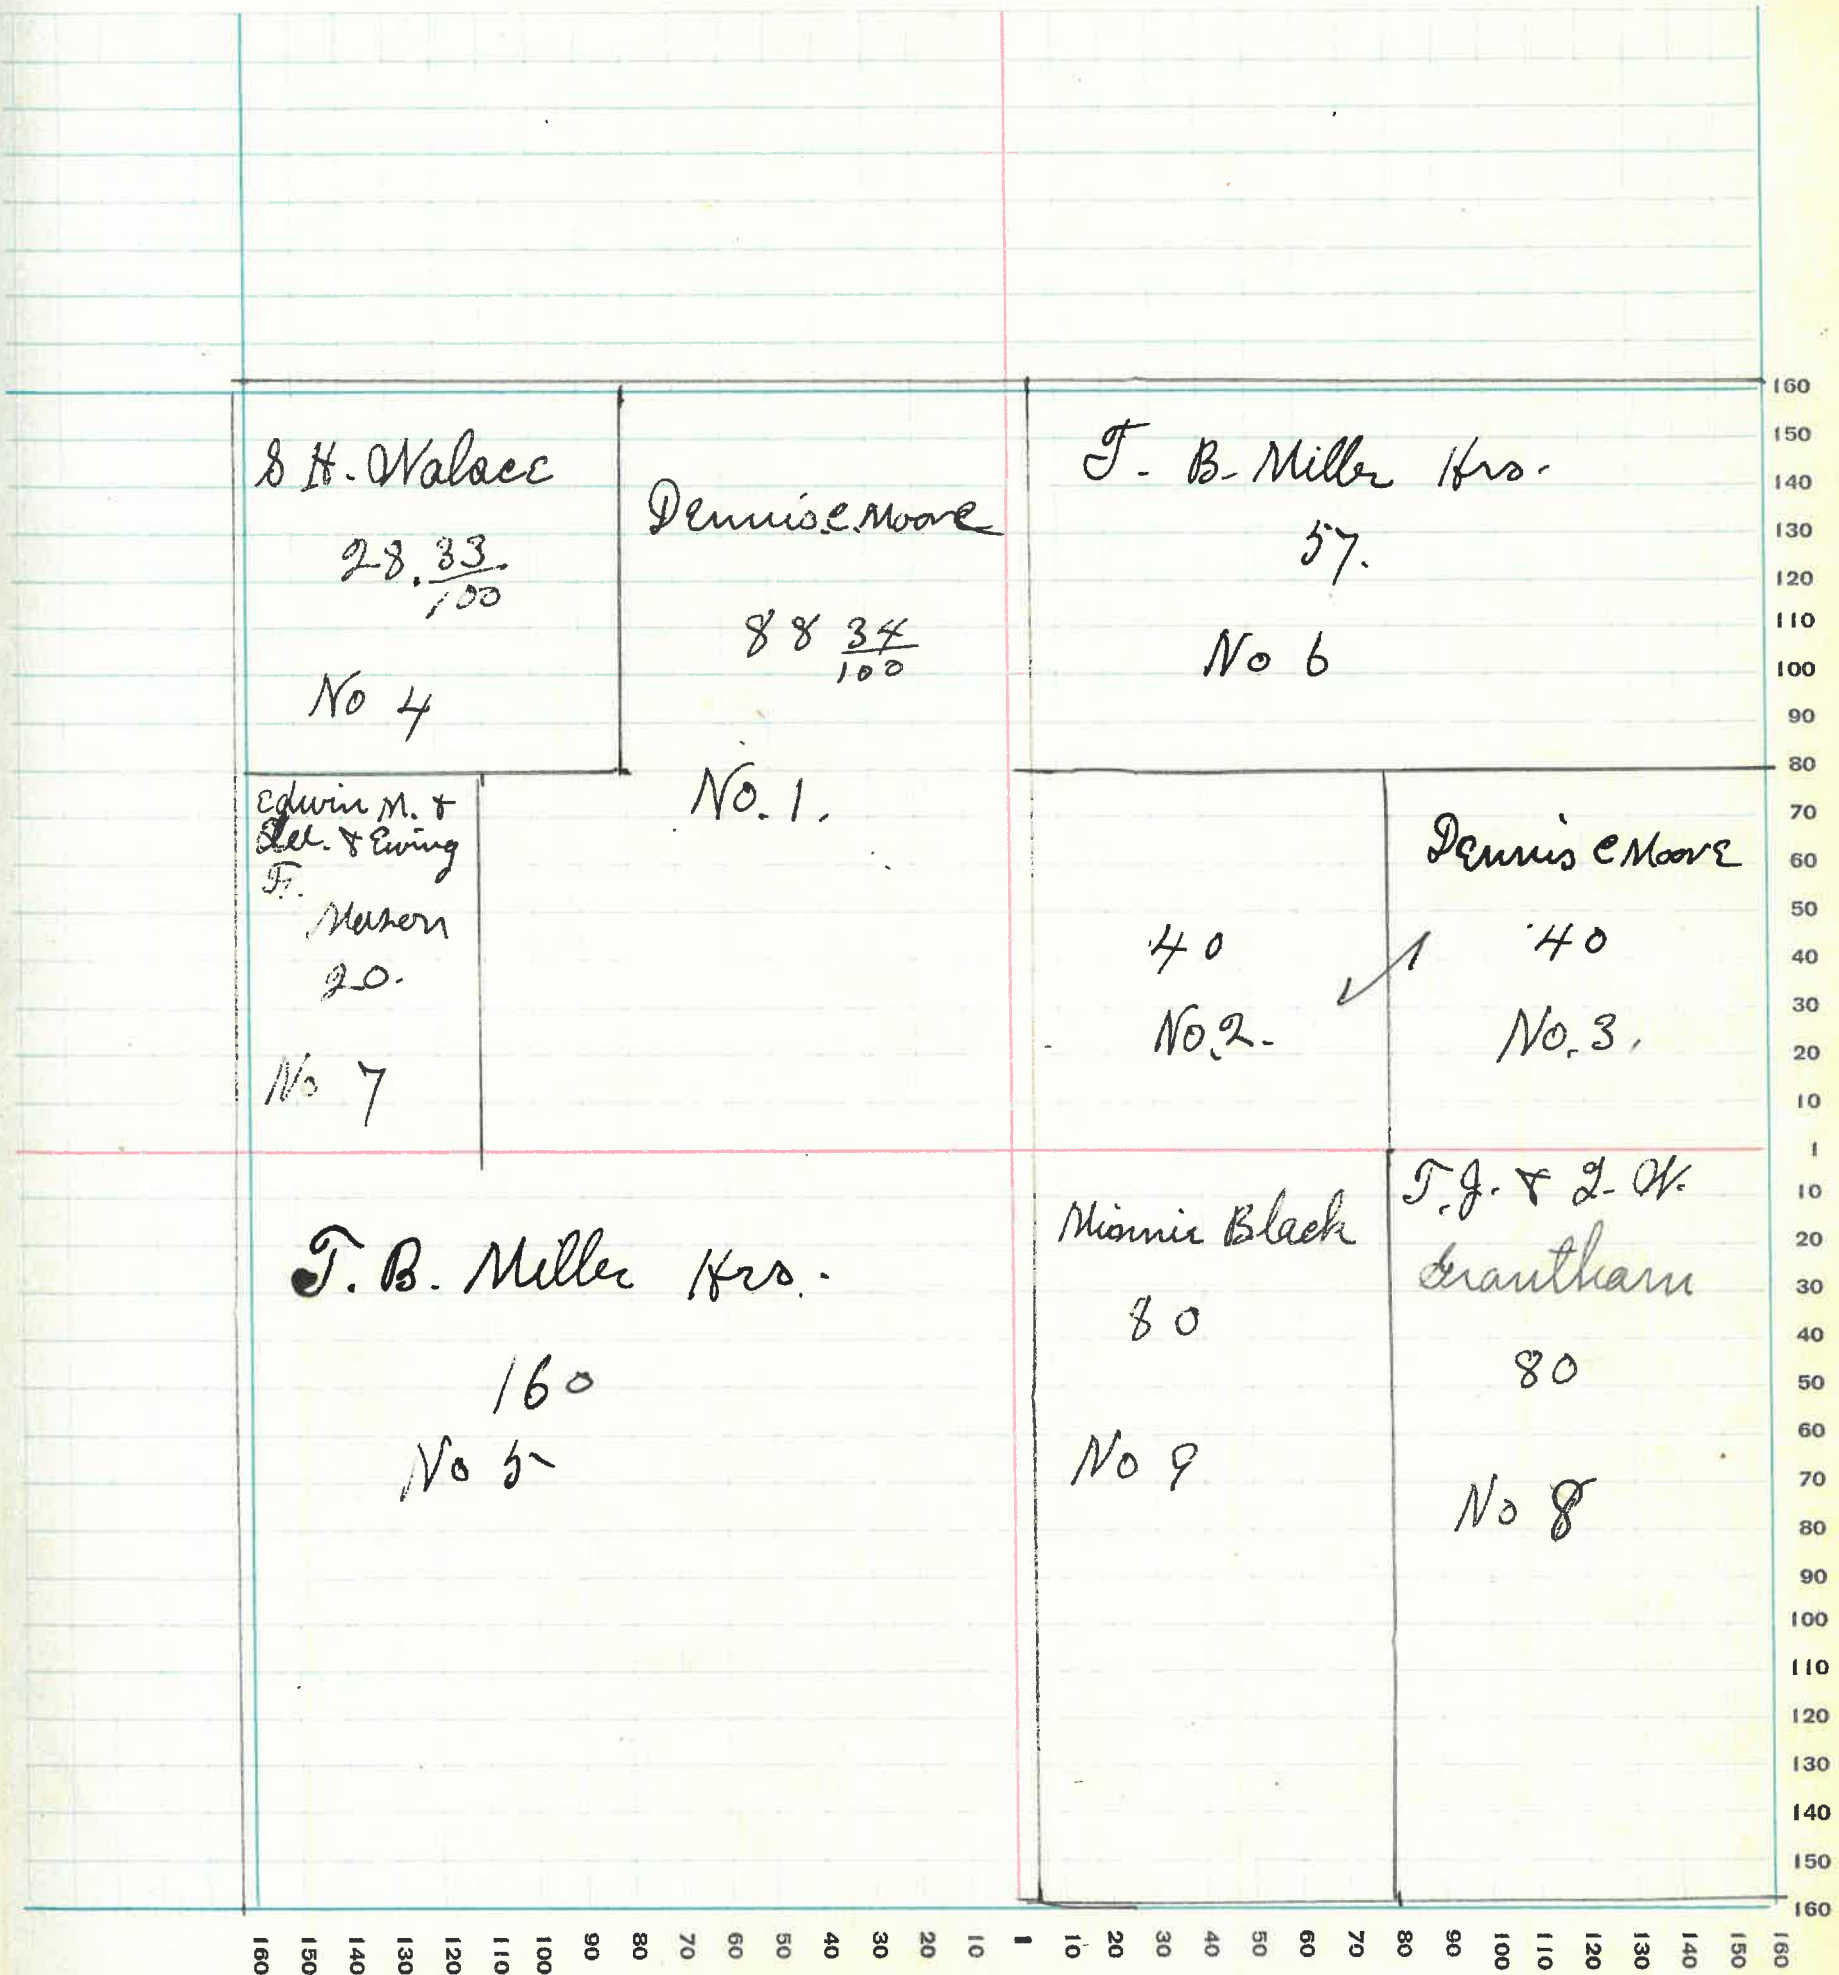 S H. Walace
28. 33/100
No 4
Dennis C Moore
88 34/100
No. 1.
T. B. Miller Hrs.
57.
No 6
Edwin M. &
& Ewing
F.
20.
No 7
40
No. 2.
Dennis C Moore
40
No. 3.
T. B. Miller Hrs.
160
No 5
Minnie Black
80
No 9
T. J. & W.
Grantham
80
No 8
160
150
140
130
120
110
100
90
80
70
60
50
40
30
20
10
1
10
20
30
40
50
60
70
80
90
100
110
120
130
140
150
160
160 150 140 130 120 110 100 90 80 70 60 50 40 30 20 10 1 10 20 30 40 50 60 70 80 90 100 110 120 130 140 150 160